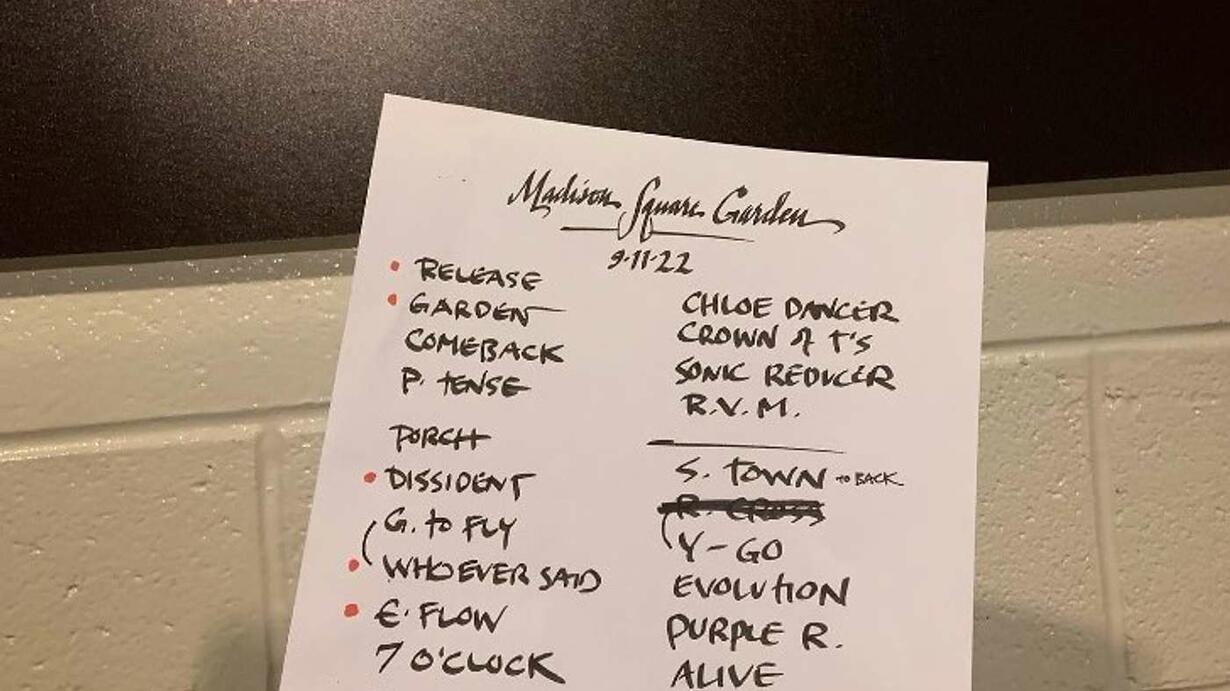 Madison Square Garden
9·11·22
RELEASE
GARDEN
COMEBACK
P. TENSE
PORCH
DISSIDENT
G. to FLY
WHOEVER SAID
E. FLOW
7 O'CLOCK
CHLOE DANCER
CROWN of T'S
SONIC REDUCER
R.V.M.
S. TOWN to BACK
R. CROSS
Y-GO
EVOLUTION
PURPLE R.
ALIVE